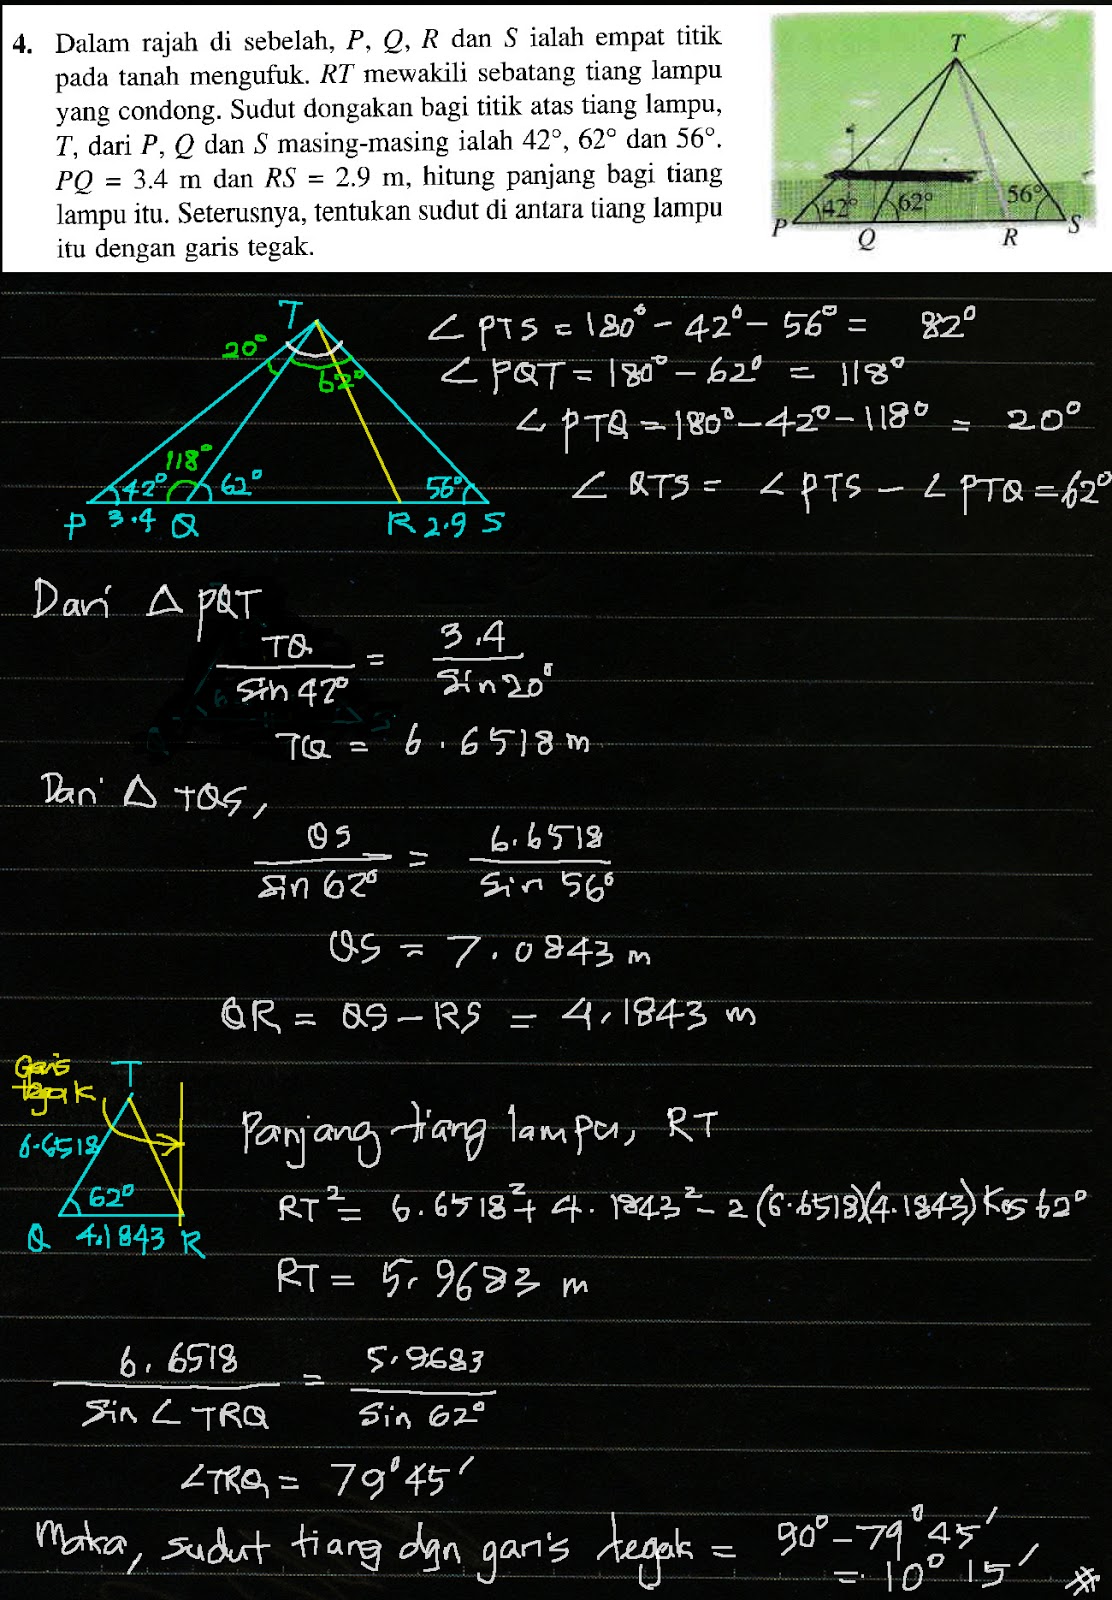 4. Dalam rajah di sebelah, P, Q, R dan S ialah empat titik
pada tanah mengufuk. RT mewakili sebatang tiang lampu
yang condong. Sudut dongakan bagi titik atas tiang lampu,
T, dari P, Q dan S masing-masing ialah 42°, 62° dan 56°.
PQ = 3.4 m dan RS = 2.9 m, hitung panjang bagi tiang
lampu itu. Seterusnya, tentukan sudut di antara tiang lampu
itu dengan garis tegak.
T
42° 62° 56°
P Q R S
T
20°
62°
118°
42° 62° 56°
P 3.4 Q R 2.9 S
∠PTS = 180° - 42° - 56° = 82°
∠PQT = 180° - 62° = 118°
∠PTQ = 180° - 42° - 118° = 20°
∠QTS = ∠PTS - ∠PTQ = 62°
Dari △ PQT
TQ / sin 42° = 3.4 / sin 20°
TQ = 6.6518 m
Dari △ TQS,
QS / sin 62° = 6.6518 / sin 56°
QS = 7.0843 m
QR = QS - RS = 4.1843 m
Garis
tegak
T
6.6518
62°
Q 4.1843 R
Panjang tiang lampu, RT
RT² = 6.6518² + 4.1843² - 2(6.6518)(4.1843) Kos 62°
RT = 5.9683 m
6.6518 / Sin ∠TRQ = 5.9683 / Sin 62°
∠TRQ = 79°45'
Maka, sudut tiang dgn garis tegak = 90° - 79°45'
= 10°15'